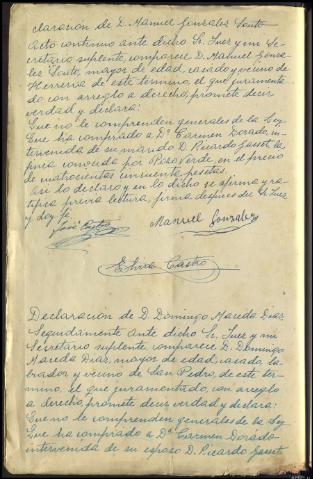 claracion de D. Manuel Gonzalez Souto
Acto continuo ante dicho Sr. Juez y mi Se-
cretario suplente, comparece D. Manuel Gonza-
lez Souto, mayor de edad, casado y vecino de
Herreria de este termino, el que juramenta-
do con arreglo a derecho, promete decir
verdad y declara:
Que no le comprenden generales de la Ley
Que ha comprado a Dª Carmen Dorado, in-
tervenida de su marido D. Ricardo Gasset, la
finca conocida por Pozo Verde, en el precio
de cuatrocientas cincuenta pesetas.
Asi lo declaro y en lo dicho se afirma y ra-
tifica previa lectura, firma despues del Sr. Juez
y doy fe.
José Castro
Manuel Gonzalez
Elvira Castro
Declaracion de D. Domingo Maseda Diaz
Seguidamente ante dicho Sr. Juez y mi
Secretario suplente, comparece D. Domingo
Maseda Diaz, mayor de edad, casado la-
brador y vecino de San Pedro, de este ter-
mino, el que juramentado, con arreglo
a derecho, promete decir verdad y declara:
Que no le comprenden generales de la Ley
Que ha comprado a Dª Carmen Dorado
intervenida de su esposo D. Ricardo Gasset